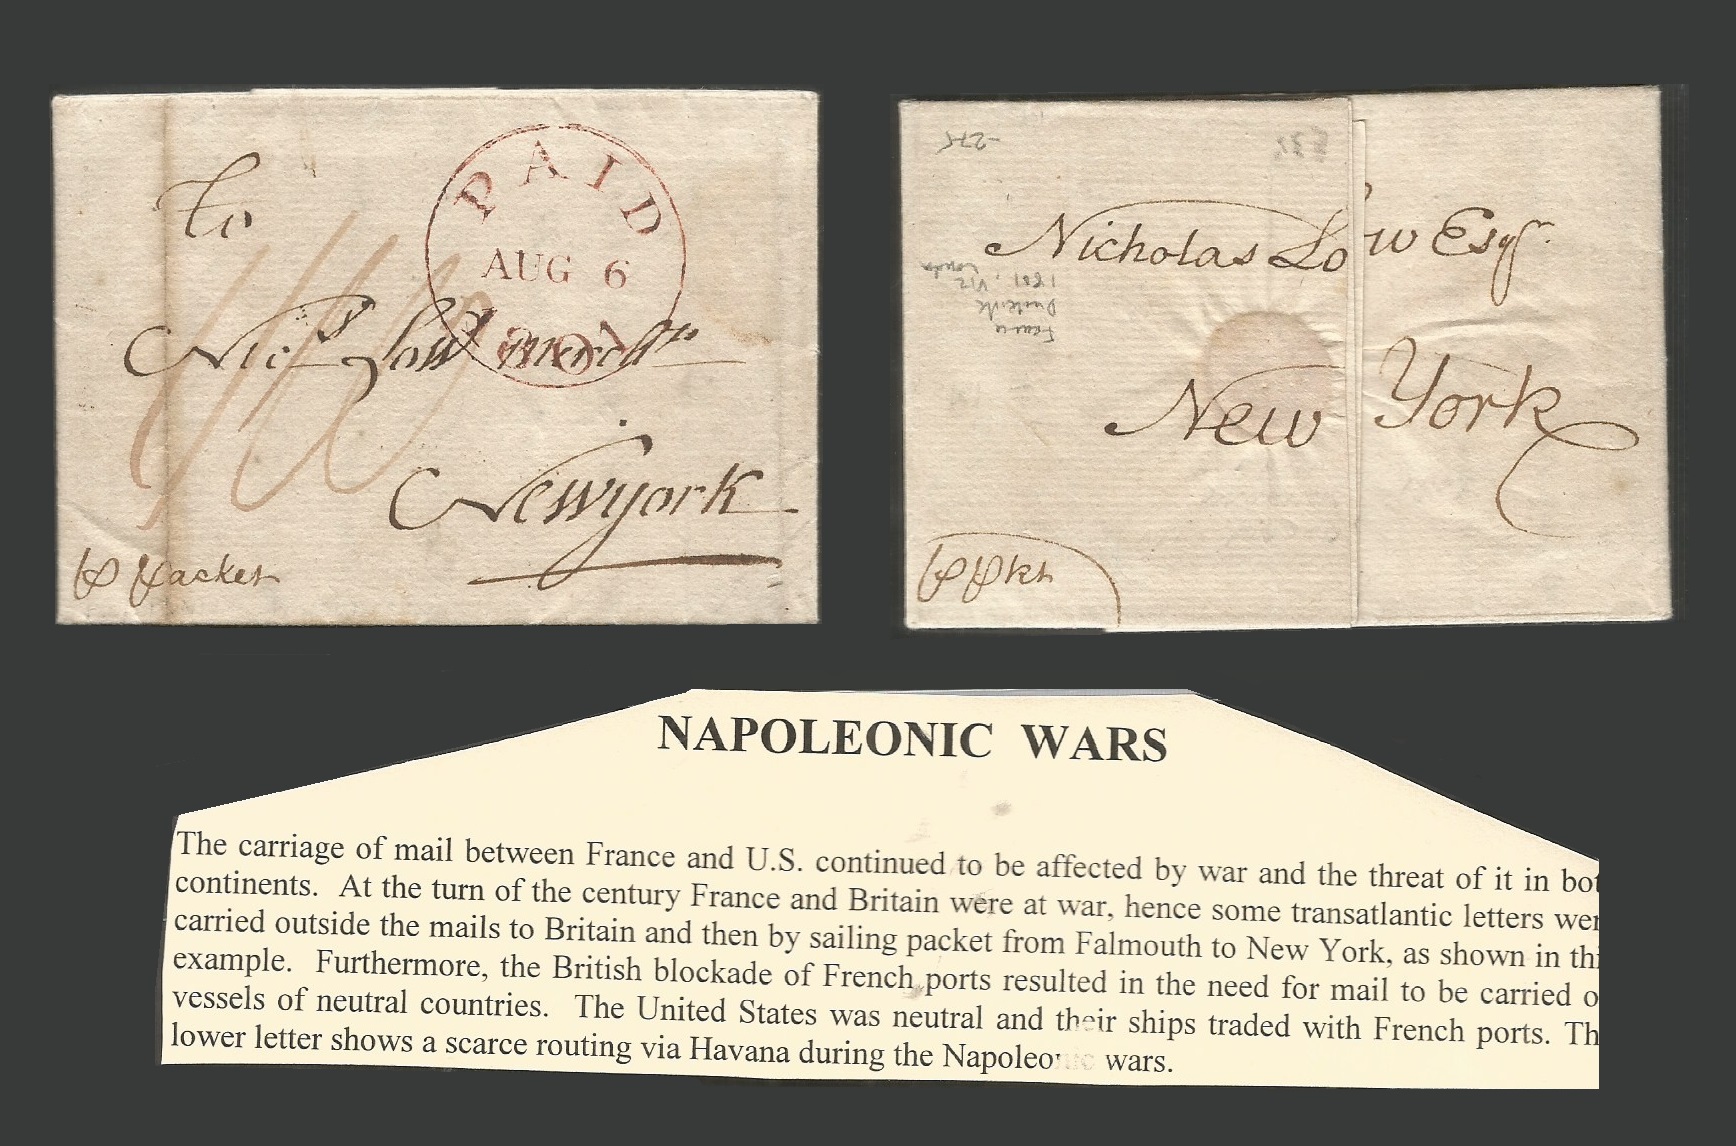 To
PAID
AUG 6
1801
Nic.s Low mercht
Newyork
p packet
-275
Nicholas Low Esqr.
France
Dunkirk
1801. via
London
New York
p pkt
NAPOLEONIC WARS
The carriage of mail between France and U.S. continued to be affected by war and the threat of it in bot
continents. At the turn of the century France and Britain were at war, hence some transatlantic letters wer
carried outside the mails to Britain and then by sailing packet from Falmouth to New York, as shown in thi
example. Furthermore, the British blockade of French ports resulted in the need for mail to be carried o
vessels of neutral countries. The United States was neutral and their ships traded with French ports. Th
lower letter shows a scarce routing via Havana during the Napoleonic wars.